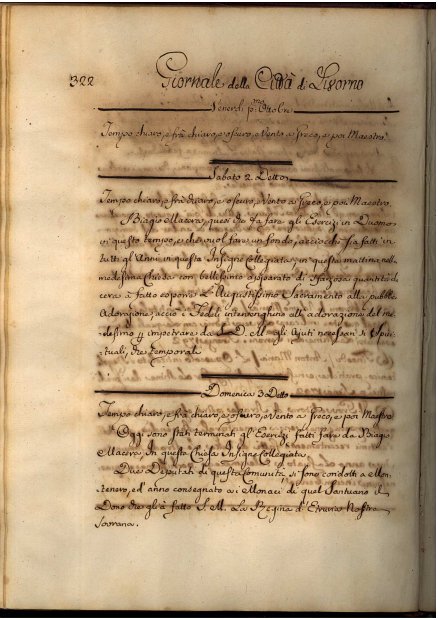 322
Giornale della Città di Livorno
Venerdi p.mo Ottobre
Tempo chiaro, e frà chiaro, e oscuro, e Vento a Greco, e poi Maestro
Sabato 2. Detto
Tempo chiaro, e frà chiaro, e oscuro, e Vento a Greco, e poi Maestro
Biagio Macera, quei che fa fare gli Esercizi in Duomo
in questo tempo, e che vuol fare un fondo, acciò che sia fatti in
tutti gl'Anni in questa Insigne Collegiata, in questa mattina nella
medesima Chiesa con bellissimo apparato di sfarzosa quantità di
cera à fatto esporre L'Augustissimo Sacramento alla pubblica
Adorazione, acciò i Fedeli intervenghino all'adorazione del me-
desimo impetrare da S. D. M. gli Ajuti necessari sì Spiri-
tuali, che temporali
Domenica 3 Detto
Tempo chiaro, e frà chiaro, e oscuro, e Vento a Greco, e poi Maestro
Oggi sono stati terminati gl'Esercizi fatti fare da Biagio
Macera, in questa Chiesa Insigne Collegiata
Due Deputati di questa Comunità si sono condotti a Mon-
tenero, ed'anno consegnato a i Monaci di quel Santuario il
Dono che già à fatto S. M. La Regina d'Etruria Nostra
Sovrana.